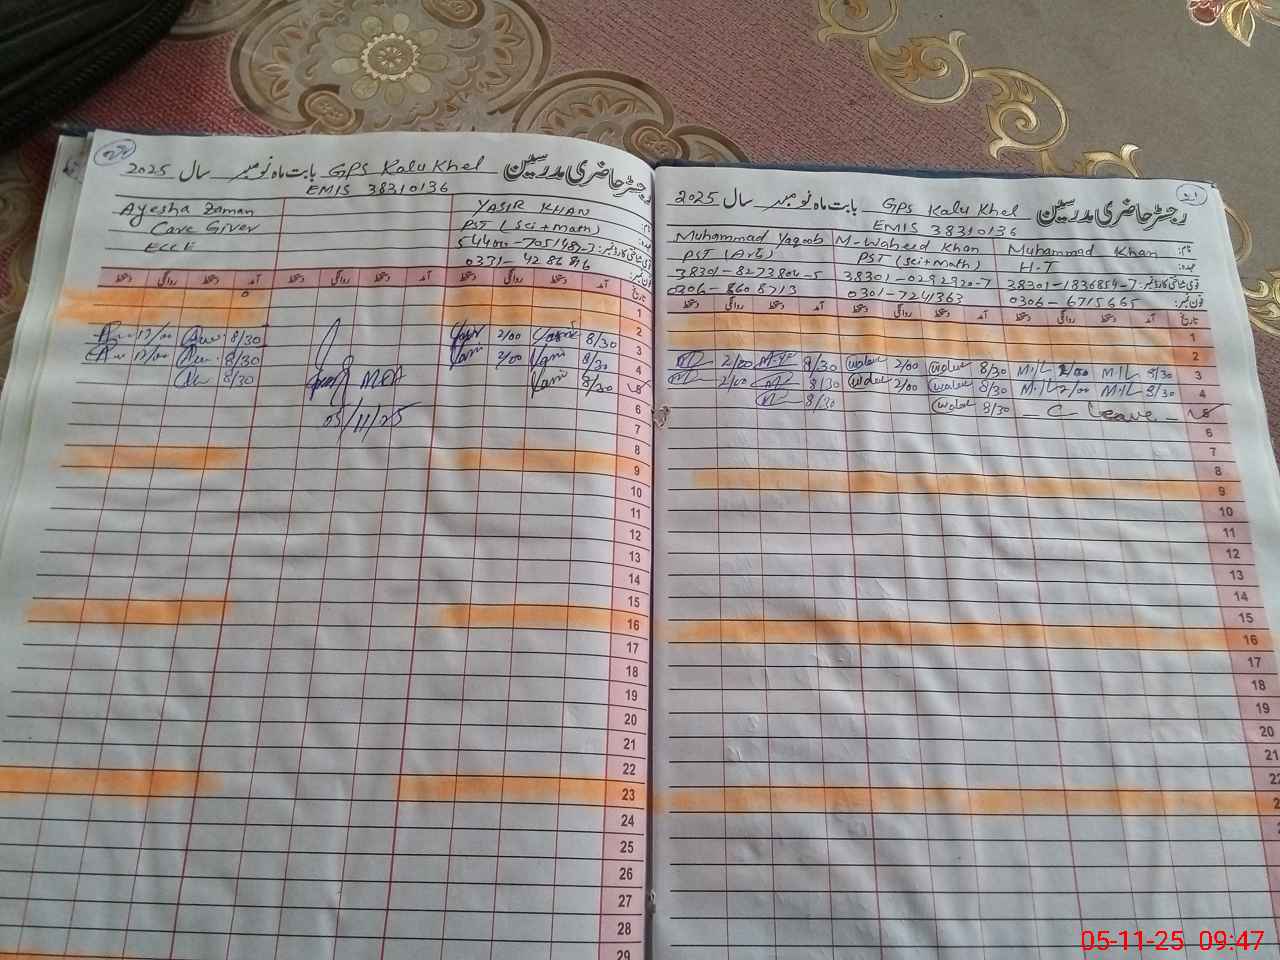 رجسٹر حاضری مدرسین GPS Kalu Khel بابت ماہ نومبر سال 2025
EMIS 38310136
Ayesha Zaman
Care Giver
ECCE
YASIR KHAN
PST (Sci+Math)
دستخط روانگی دستخط آمد دستخط روانگی دستخط آمد دستخط روانگی دستخط آمد تاریخ
1
2
12/00 8/30 2/00 8/30 3
12/00 8/30 2/00 8/30 4
8/30 8/30 5
MEA
05/11/25
6
7
8
9
10
11
12
13
14
15
16
17
18
19
20
21
22
23
24
25
26
27
28
29
21
رجسٹر حاضری مدرسین GPS Kalu Khel بابت ماہ نومبر سال 2025
EMIS 38310136
نام: Muhammad Khan M-Waheed Khan Muhammad Yaqoob
عہدہ: H.T PST (Sci+Math) PST (Arts)
38301-1836854-7 38301-0292320-7 38301-8273804-5
فون نمبر: 0306-6715665 0301-7241363 0306-8608713
دستخط روانگی دستخط آمد دستخط روانگی دستخط آمد دستخط روانگی دستخط آمد تاریخ
1
2
2/00 8/30 2/00 8/30 2/00 8/30 3
2/00 8/30 2/00 8/30 2/00 8/30 4
8/30 8/30 C Leave 5
6
7
8
9
10
11
12
13
14
15
16
17
18
19
20
21
05-11-25 09:47